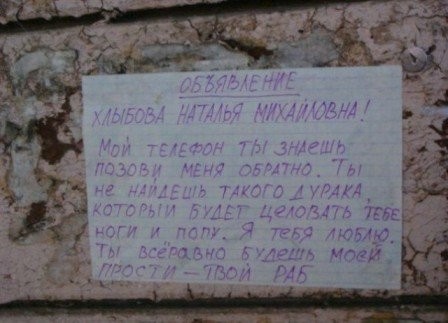 ОБЪЯВЛЕНИЕ
ХЛЫБОВА НАТАЛЬЯ МИХАЙЛОВНА!
МОЙ ТЕЛЕФОН ТЫ ЗНАЕШЬ
ПОЗОВИ МЕНЯ ОБРАТНО. ТЫ
НЕ НАЙДЕШЬ ТАКОГО ДУРАКА,
КОТОРЫЙ БУДЕТ ЦЕЛОВАТЬ ТЕБЕ
НОГИ И ПОПУ. Я ТЕБЯ ЛЮБЛЮ.
ТЫ ВСЁРАВНО БУДЕШЬ МОЕЙ
ПРОСТИ — ТВОЙ РАБ